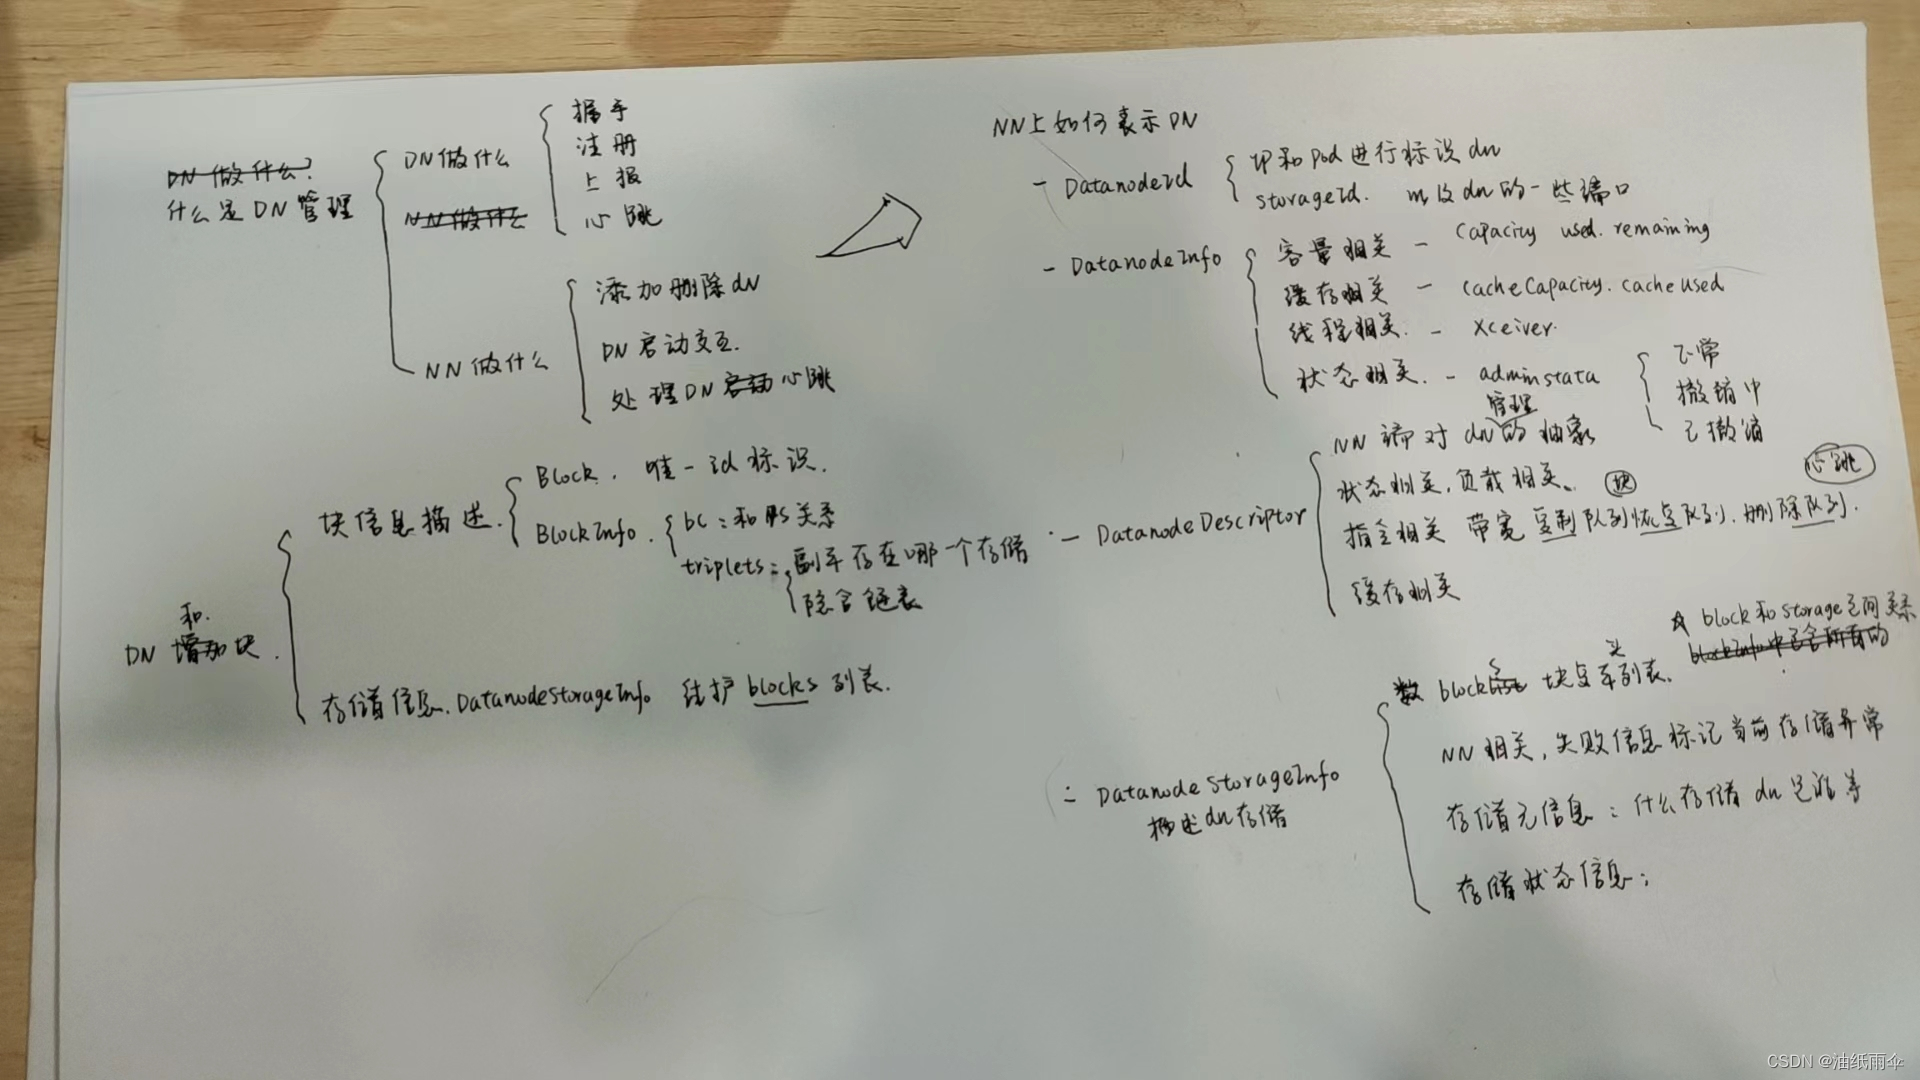 DN 做什么?
什么是DN管理
DN做什么
握手
注册
上报
心跳
NN做什么
NN做什么
添加删除dN
DN启动交互.
处理DN启动心跳
块信息描述.
Block. 唯一id标识.
BlockInfo.
bc:和BS关系
triplets:副本存在哪一个存储
隐含链表
和.
DN 增加块.
存储信息.DatanodeStorageInfo 维护blocks列表.
NN上如何表示DN
- DatanodeId
和pod进行标识dn
storageId. 以及dn的一些端口
- DatanodeInfo
容量相关 - capacity used. remaining
缓存相关 - cacheCapacity. cacheused
线程相关. - xceiver.
状态相关. - adminstata
正常
撤销中
已撤销
- DatanodeDescriptor
管理
NN端对dn的抽象
状态相关,负载相关、
块
心跳
指令相关 带宽 复制队列恢复队列.删除队列.
缓存相关
block和storage之间关系
blockInfo中包含所有的
- DatanodeStorageInfo
描述dn存储
数 blocklist 块 列表、
头
NN相关,失败信息标记当前存储异常
存储元信息:什么存储dn是谁等
存储状态信息;
CSDN @油纸雨伞